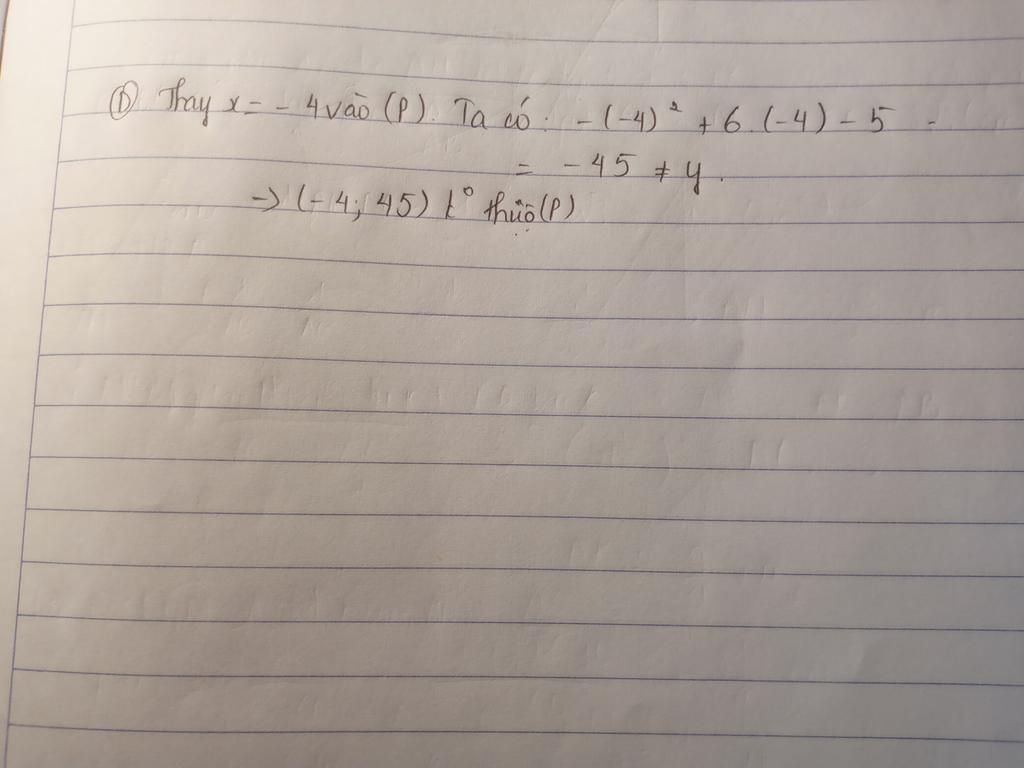 ① Thay x = - 4 vào (P). Ta có: -(-4)² + 6.(-4) - 5
= - 45 ≠ y.
→ (-4; 45) k° thuộ (P)